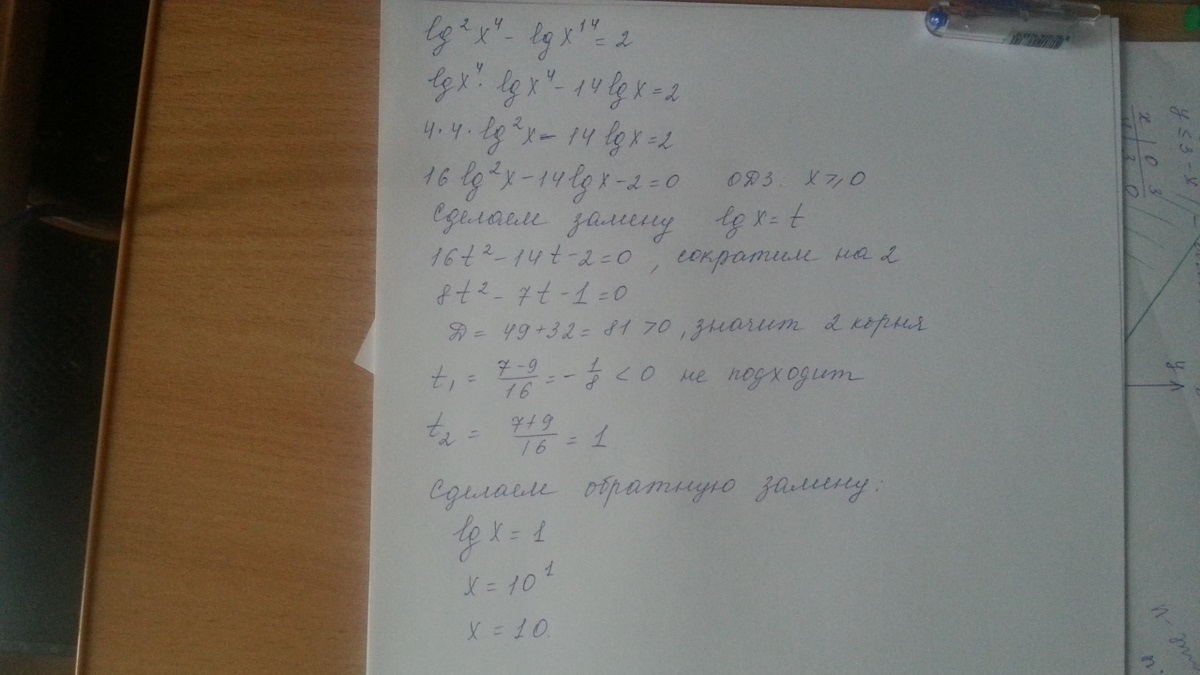 lg²x⁴ - lgx¹⁴ = 2
lgx⁴ · lgx⁴ - 14lgx = 2
4·4·lg²x - 14lgx = 2
16lg²x - 14lgx - 2 = 0 ОДЗ. x ⩾ 0
Сделаем замену lgx = t
16t² - 14t - 2 = 0, сократим на 2
8t² - 7t - 1 = 0
Д = 49 + 32 = 81 > 0, значит 2 корня
t₁ = (7-9)/16 = -1/8 < 0 не подходит
t₂ = (7+9)/16 = 1
Сделаем обратную замену:
lgx = 1
x = 10¹
x = 10.
y ≤ 3 - x
x 0 3
y 3 0
y